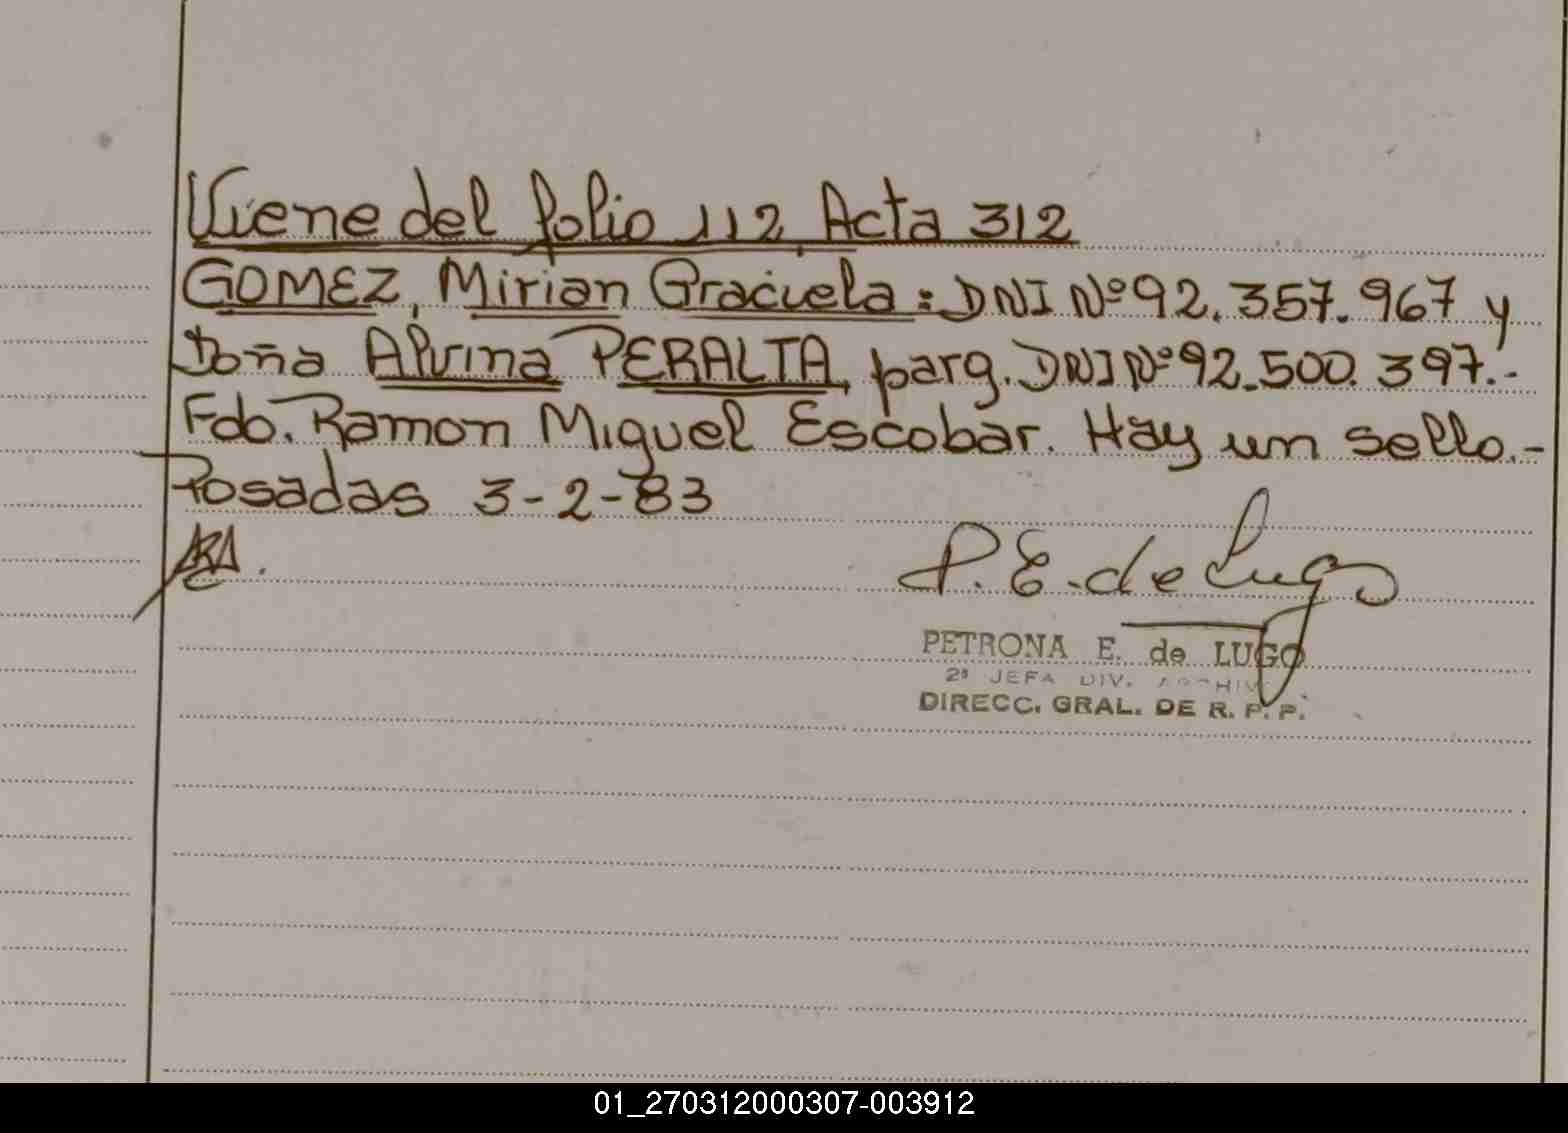 Viene del folio 112, Acta 312
GOMEZ, Mirian Graciela: DNI Nº 92.357.967 y
Doña Alvina PERALTA, parg. DNI Nº 92.500.397.-
Fdo. Ramon Miguel Escobar. Hay un sello.-
Posadas 3-2-83
P. E. de Lugo
PETRONA E. de LUGO
2ª JEFA DIV. ARCHIV
DIRECC. GRAL. DE R. P. P.
01_270312000307-003912